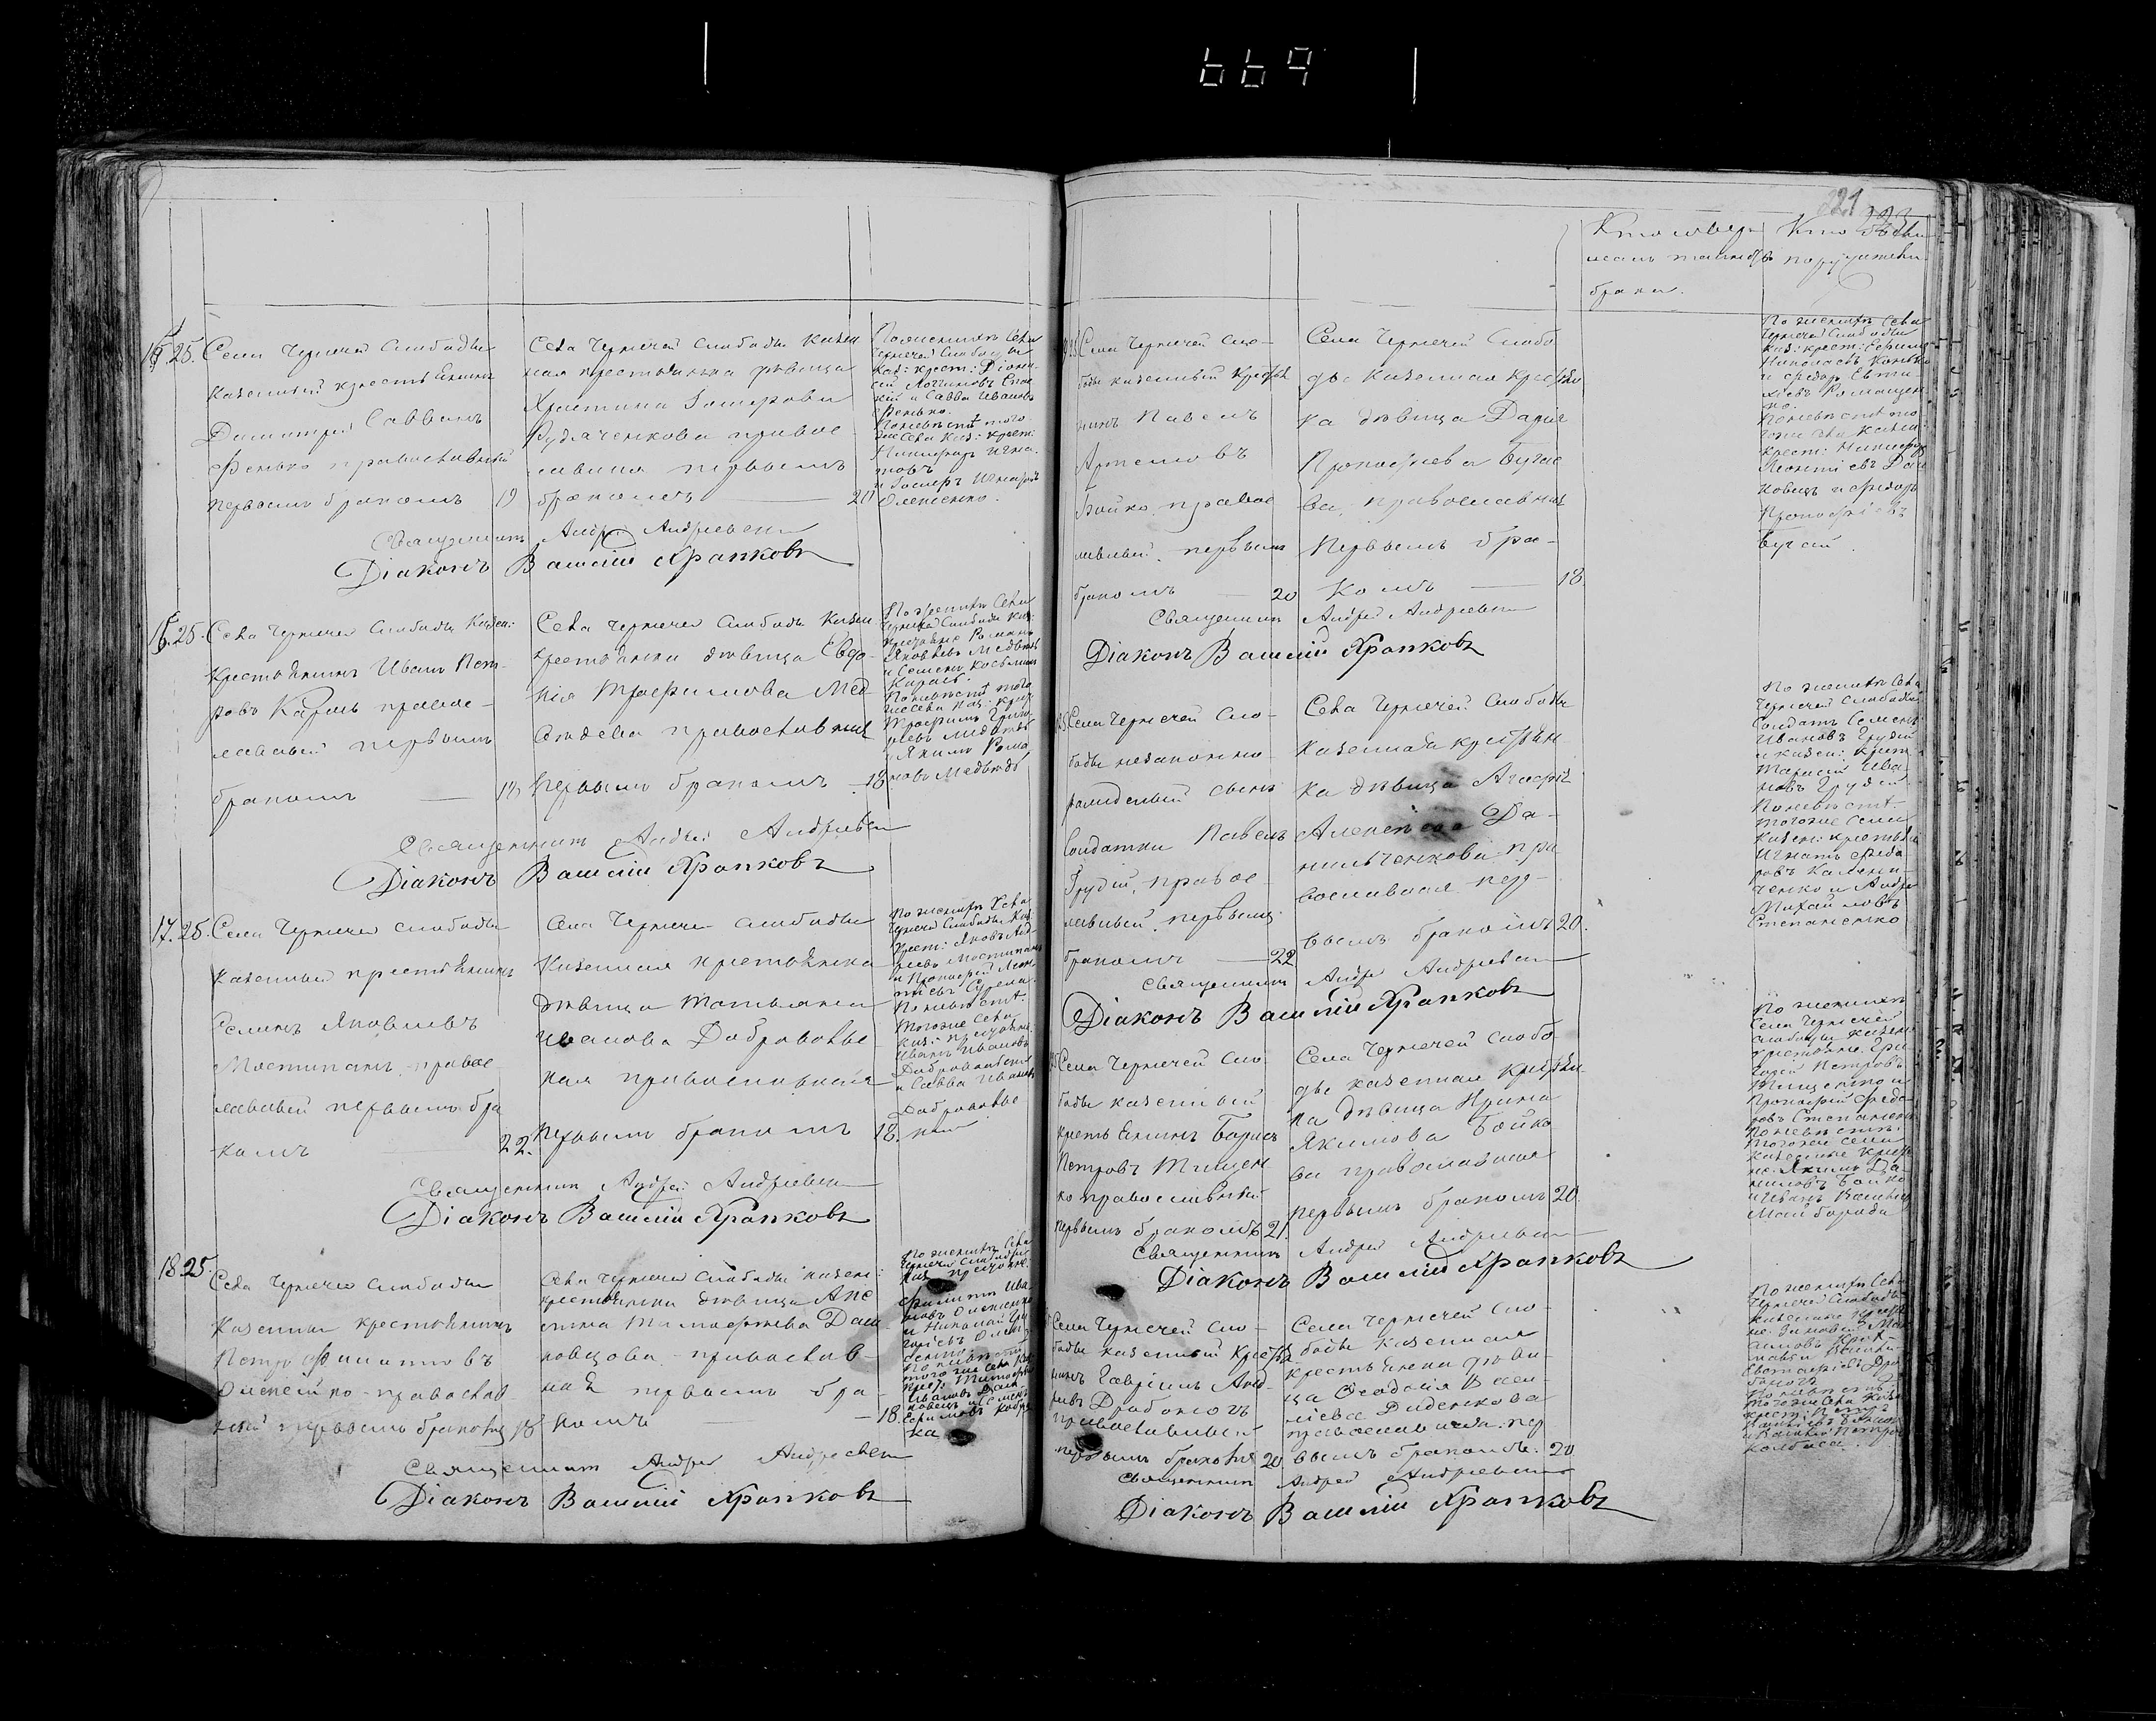 669
221
223
Кто совер
шалъ таинство
брака.
Кто были
поручители
15. 25. Села Чернечей Слободы
казенный крестьянинъ
Димитрій Саввинъ
Фенько православный
первымъ бракомъ 19
Села Чернечей Слободы казен
ная крестьянка дѣвица
Христина
православная
первымъ
бракомъ 20
По женихѣ Села
Чернечей Слободы
каз: крест:
и Савва Ивановъ
Фенько.
По невѣстѣ того
же Села каз: крест:
Олексенко.
Священникъ Андрей Андріевскій
Діаконъ Василій Храпковъ
16. 25. Села Чернечей Слободы казен:
крестьянинъ Иванъ Пет-
ровъ Карась правос-
лавный первымъ
бракомъ 18
Села Чернечей Слободы казен
крестьянка дѣвица Евдо-
кія Трофимова Мед-
вѣдева православная
первымъ бракомъ 18
По женихѣ Села
Чернечей Слободы каз:
крестьяне Романъ
Яковлевъ Медвѣдь
и Семенъ Косьминъ
Карась.
По невѣстѣ того
же Села каз: крес
Трофимъ Григо
рьевъ Медвѣдь
и Якимъ Рома
новъ Медвѣдь
Священникъ Андрей Андріевскій
Діаконъ Василій Храпковъ
17. 25. Села Чернечей Слободы
казенный крестьянинъ
Яковлевъ
Мостипанъ правос
лавный первымъ бра
комъ 22.
Села Чернечей Слободы
казенная крестьянка
дѣвица Татьяна
Иванова Добровольс
кая православная
первымъ бракомъ 18.
По женихѣ Села
Чернечей Слободы каз:
крест: Яковъ Анд
реевъ Мостипанъ
и Прокофій Леон
тіевъ
По невѣстѣ
тогоже Села
каз: крестьяне
Иванъ Ивановъ
Добровольскій
и Савва Ивановъ
Добровольс
кій
Священникъ Андрей Андріевскій
Діаконъ Василій Храпковъ
18 25.
Села Чернечей Слободы
казенный крестьянинъ
Петръ Филиповъ
Олексенко православ
ный первымъ бракомъ 18
Села Чернечей Слободы казен:
крестьянка дѣвица Акс
енія Тимофеева Даш
ковцова православ-
ная первымъ бра-
комъ 18.
По женихѣ Села
Чернечей Слободы
каз крестьяне
Филипъ Ива
новъ Олексенко
и Николай Гри
горіевъ Олек
сенко.
По невѣстѣ
того же Села каз
крес Тимофей
Ивановъ Даш
ковецъ и Семенъ
Ефимовъ Кобз
ка
Священникъ Андрей Андріевскій
Діаконъ Василій Храпковъ
Села Чернечей Сло-
боды казенный крестья
нинъ Павелъ
Артемовъ
Бойко, правос
лавный первымъ
бракомъ 20
Села Чернечей Слобо
ды казенная крестьян
ка дѣвица Дарія
Прокофіева Бугае
ва, православная
первымъ бра-
комъ 18.
По женихѣ Села
Чернечей Слободы
каз: крест: Евфимъ
Николаевъ
и Федоръ Евти
хіевъ Романцен
ко.
По невѣстѣ то
гоже Села казен:
крест: Никифоръ
Леонтіевъ Даш
ковецъ и Федоръ
Прокофіевъ
Бугай.
Священникъ Андрей Андріевскій
Діаконъ Василій Храпковъ
Села Чернечей Сло-
боды незаконно
рожденный сынъ
Солдатки Павелъ
Грудій, правос-
лавный, первымъ
бракомъ 22
Села Чернечей Слободы
казенная крестьян
ка дѣвица Агафія
Алексѣева Да-
нильченкова пра
вославная пер-
вымъ бракомъ 20.
По женихѣ Села
Чернечей Слободы
Солдатъ Семенъ
Ивановъ Грудій
и казен: крест
Тарасій Ива
новъ Грудій.
По невѣстѣ
тогоже Села
казен: крестьяне
Игнатъ Федо
ровъ Калени
ченко и Андрей
Михайловъ
Степаненко
Священникъ Андрей Андріевскій
Діаконъ Василій Храпковъ
Села Чернечей Сло
боды казенный
крестьянинъ Борисъ
Петровъ Тищен
ко православный
первымъ бракомъ 21.
Села Чернечей Слобо
ды казенная крестьян
ка дѣвица Ирина
Якимова Бойко
ва православная
первымъ бракомъ 20.
По женихѣ
Села Чернечей
Слободы казен
крестьяне Гри
горій Петровъ
Тищенко и
Прокофій Федо
ровъ Степаненко
По невѣстѣ:
тогоже Села
казенные крестья
не: Якимъ Да-
ниловъ Бойко
и Иванъ Васильев
Майборода
Священникъ Андрей Андріевскій
Діаконъ Василій Храпковъ
Села Чернечей Сло-
боды казенный крестья
нинъ Гавріилъ Анд-
реевъ Дробоногъ
православный
первымъ бракомъ 20
Села Чернечей Сло-
боды казенная
крестьянка дѣви-
ца Феодосія Васи-
ліева Диденкова
православная: пер
вымъ бракомъ: 20
По женихѣ Села
Чернечей Слободы
казенные крестья
не: Зиновій Мак
симовъ
Дро
боногъ
По невѣстѣ
тогоже Села казе
крест: Петръ
и Василій Петров
Колбаса.
Священникъ Андрей Андріевскій
Діаконъ Василій Храпковъ